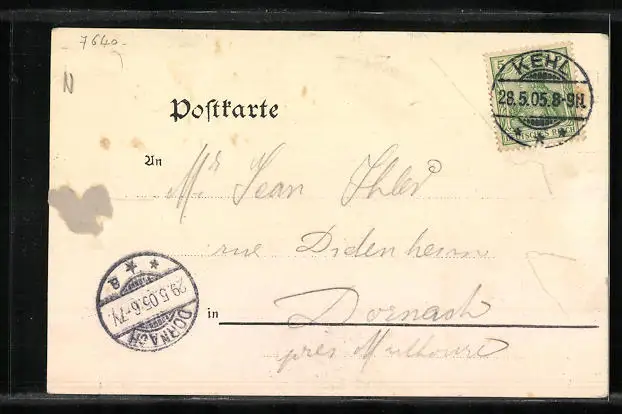 7640.
N
5
KEHL
28.5.05.8-9N.
DEUTSCHES REICH
Postkarte
An
Mr Jean Ihler
rue Didenheim
a
29.5.05.6-7V.
DORNACH
in Dornach
près Mulhouse